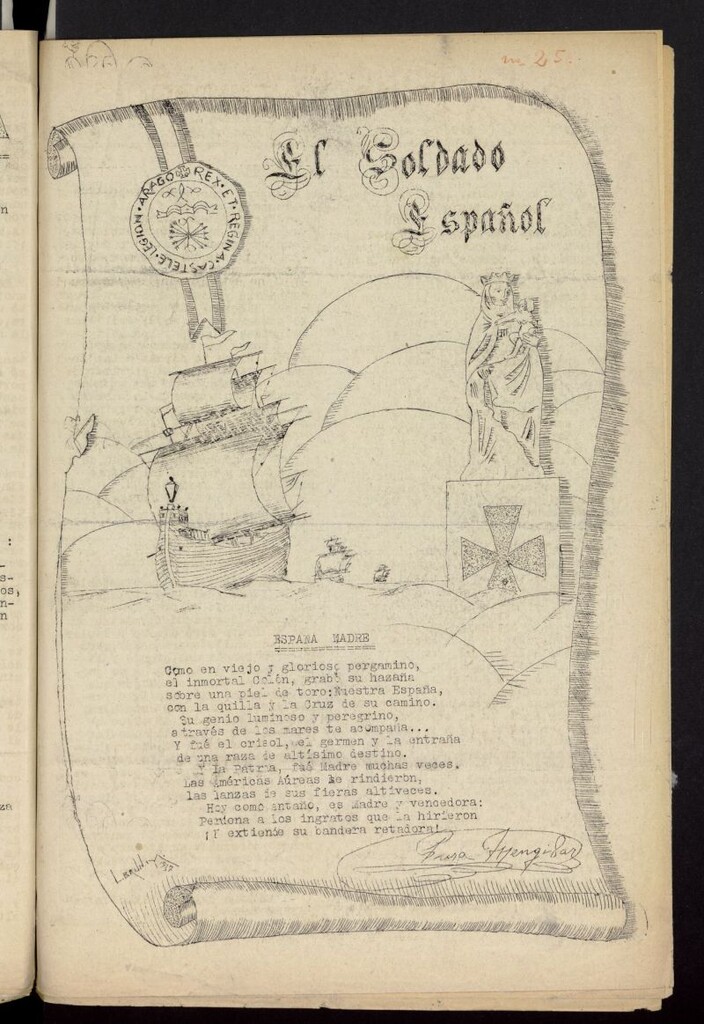 nº 25.
El Soldado
Español
ARAGO REX·ET·REGINA·CASTELE·LEGION·
ESPAÑA MADRE
Como en viejo y glorioso pergamino,
el inmortal Colón, grabó su hazaña
sobre una piel de toro:Nuestra España,
con la quilla y la Cruz de su camino.
Su genio luminoso y peregrino,
através de los mares te acompaña...
Y fué el crisol, el germen y la entraña
de una raza de altísimo destino.
Y la Patria, fué Madre muchas veces.
Las Américas Aúreas se rindieron,
las lanzas de sus fieras altiveces.
Hoy como antaño, es Madre y vencedora:
Perdona a los ingratos que la hirieron
¡Y extiende su bandera retadora!
:
n
s-
os,
n-
n
za